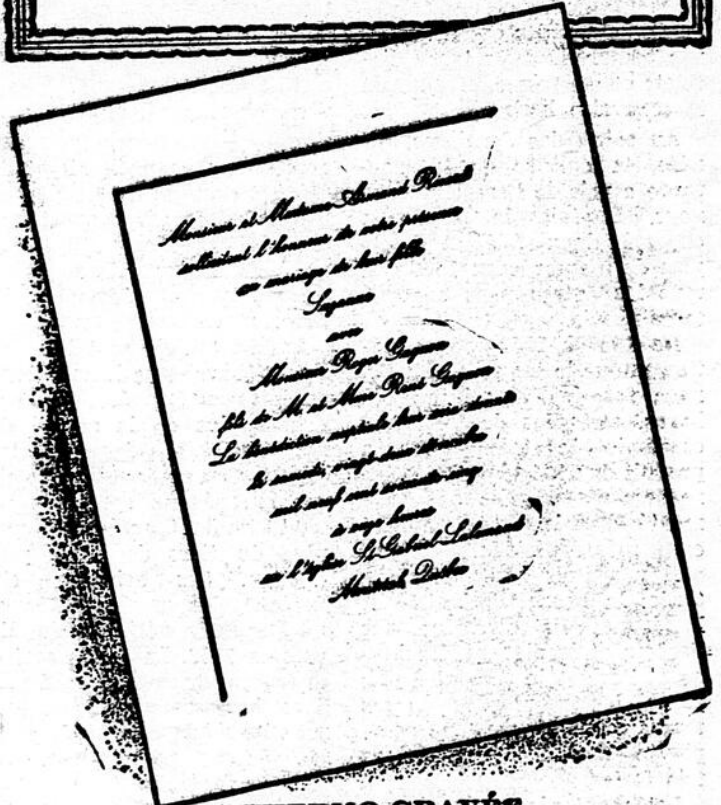 Monsieur et Madame Armand Ricard
sollicitent l'honneur de votre présence
au mariage de leur fille
Suzanne
avec
Monsieur Roger Gagnon
fils de M. et Mme René Gagnon
La bénédiction nuptiale leur sera donnée
le samedi, vingt-deux
mil neuf cent soixante-cinq
à onze heures
en l'église St-Gabriel-Lalemant
Montréal, Québec
GRAVÉS